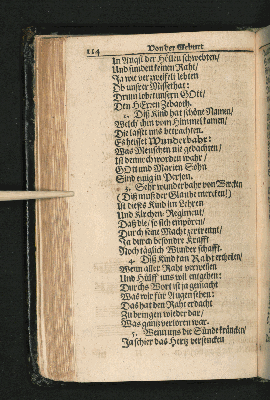 114 Von der Geburt
In Angst der Hellen schwebten/
Und funden keinen Raht/
Ja wir verzweifelt lebten
Ob unsrer Missethat:
Drum lobet unsern GOtt/
Den HErren Zebaoth.
2. Diß Kind hat schöne Namen/
Welch' ihm vom Himmel kamen/
Die lasst uns betrachten.
Es heisset Wunderbahr:
Was Menschen nie gedachten/
Ist dennoch worden wahr/
GOtt und Marien Sohn
Sind einig in Person.
3. Sehr wunderbahr von Wercken
(Diß muß der Glaube mercken!)
Ist dieses Kind im Lehren
Und Kirchen-Regiment/
Daß die/ so sich empören/
Durch seine Macht zertrennt/
Ja durch besondre Krafft
Noch täglich Wunder schafft.
4. Diß Kind kan Raht ertheilen/
Wenn aller Raht verweilen
Und Hülff uns wil entgehen:
Durchs Wort ist ja gemacht
Was wir für Augen sehen:
Das hat den Raht erdacht
Zu bringen wieder dar/
Was gantz verloren war.
5. Wenn uns die Sünde kräncken/
Ja schier das Hertz versencken